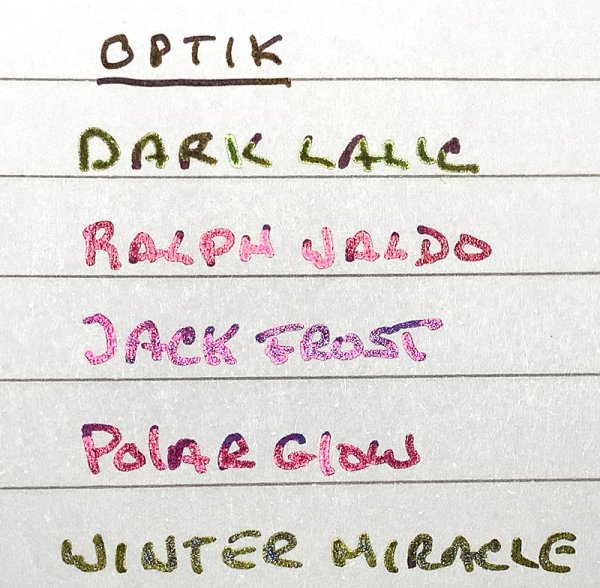 OPTIK
DARK LALIC
RALPH WALDO
JACK FROST
POLAR GLOW
WINTER MIRACLE